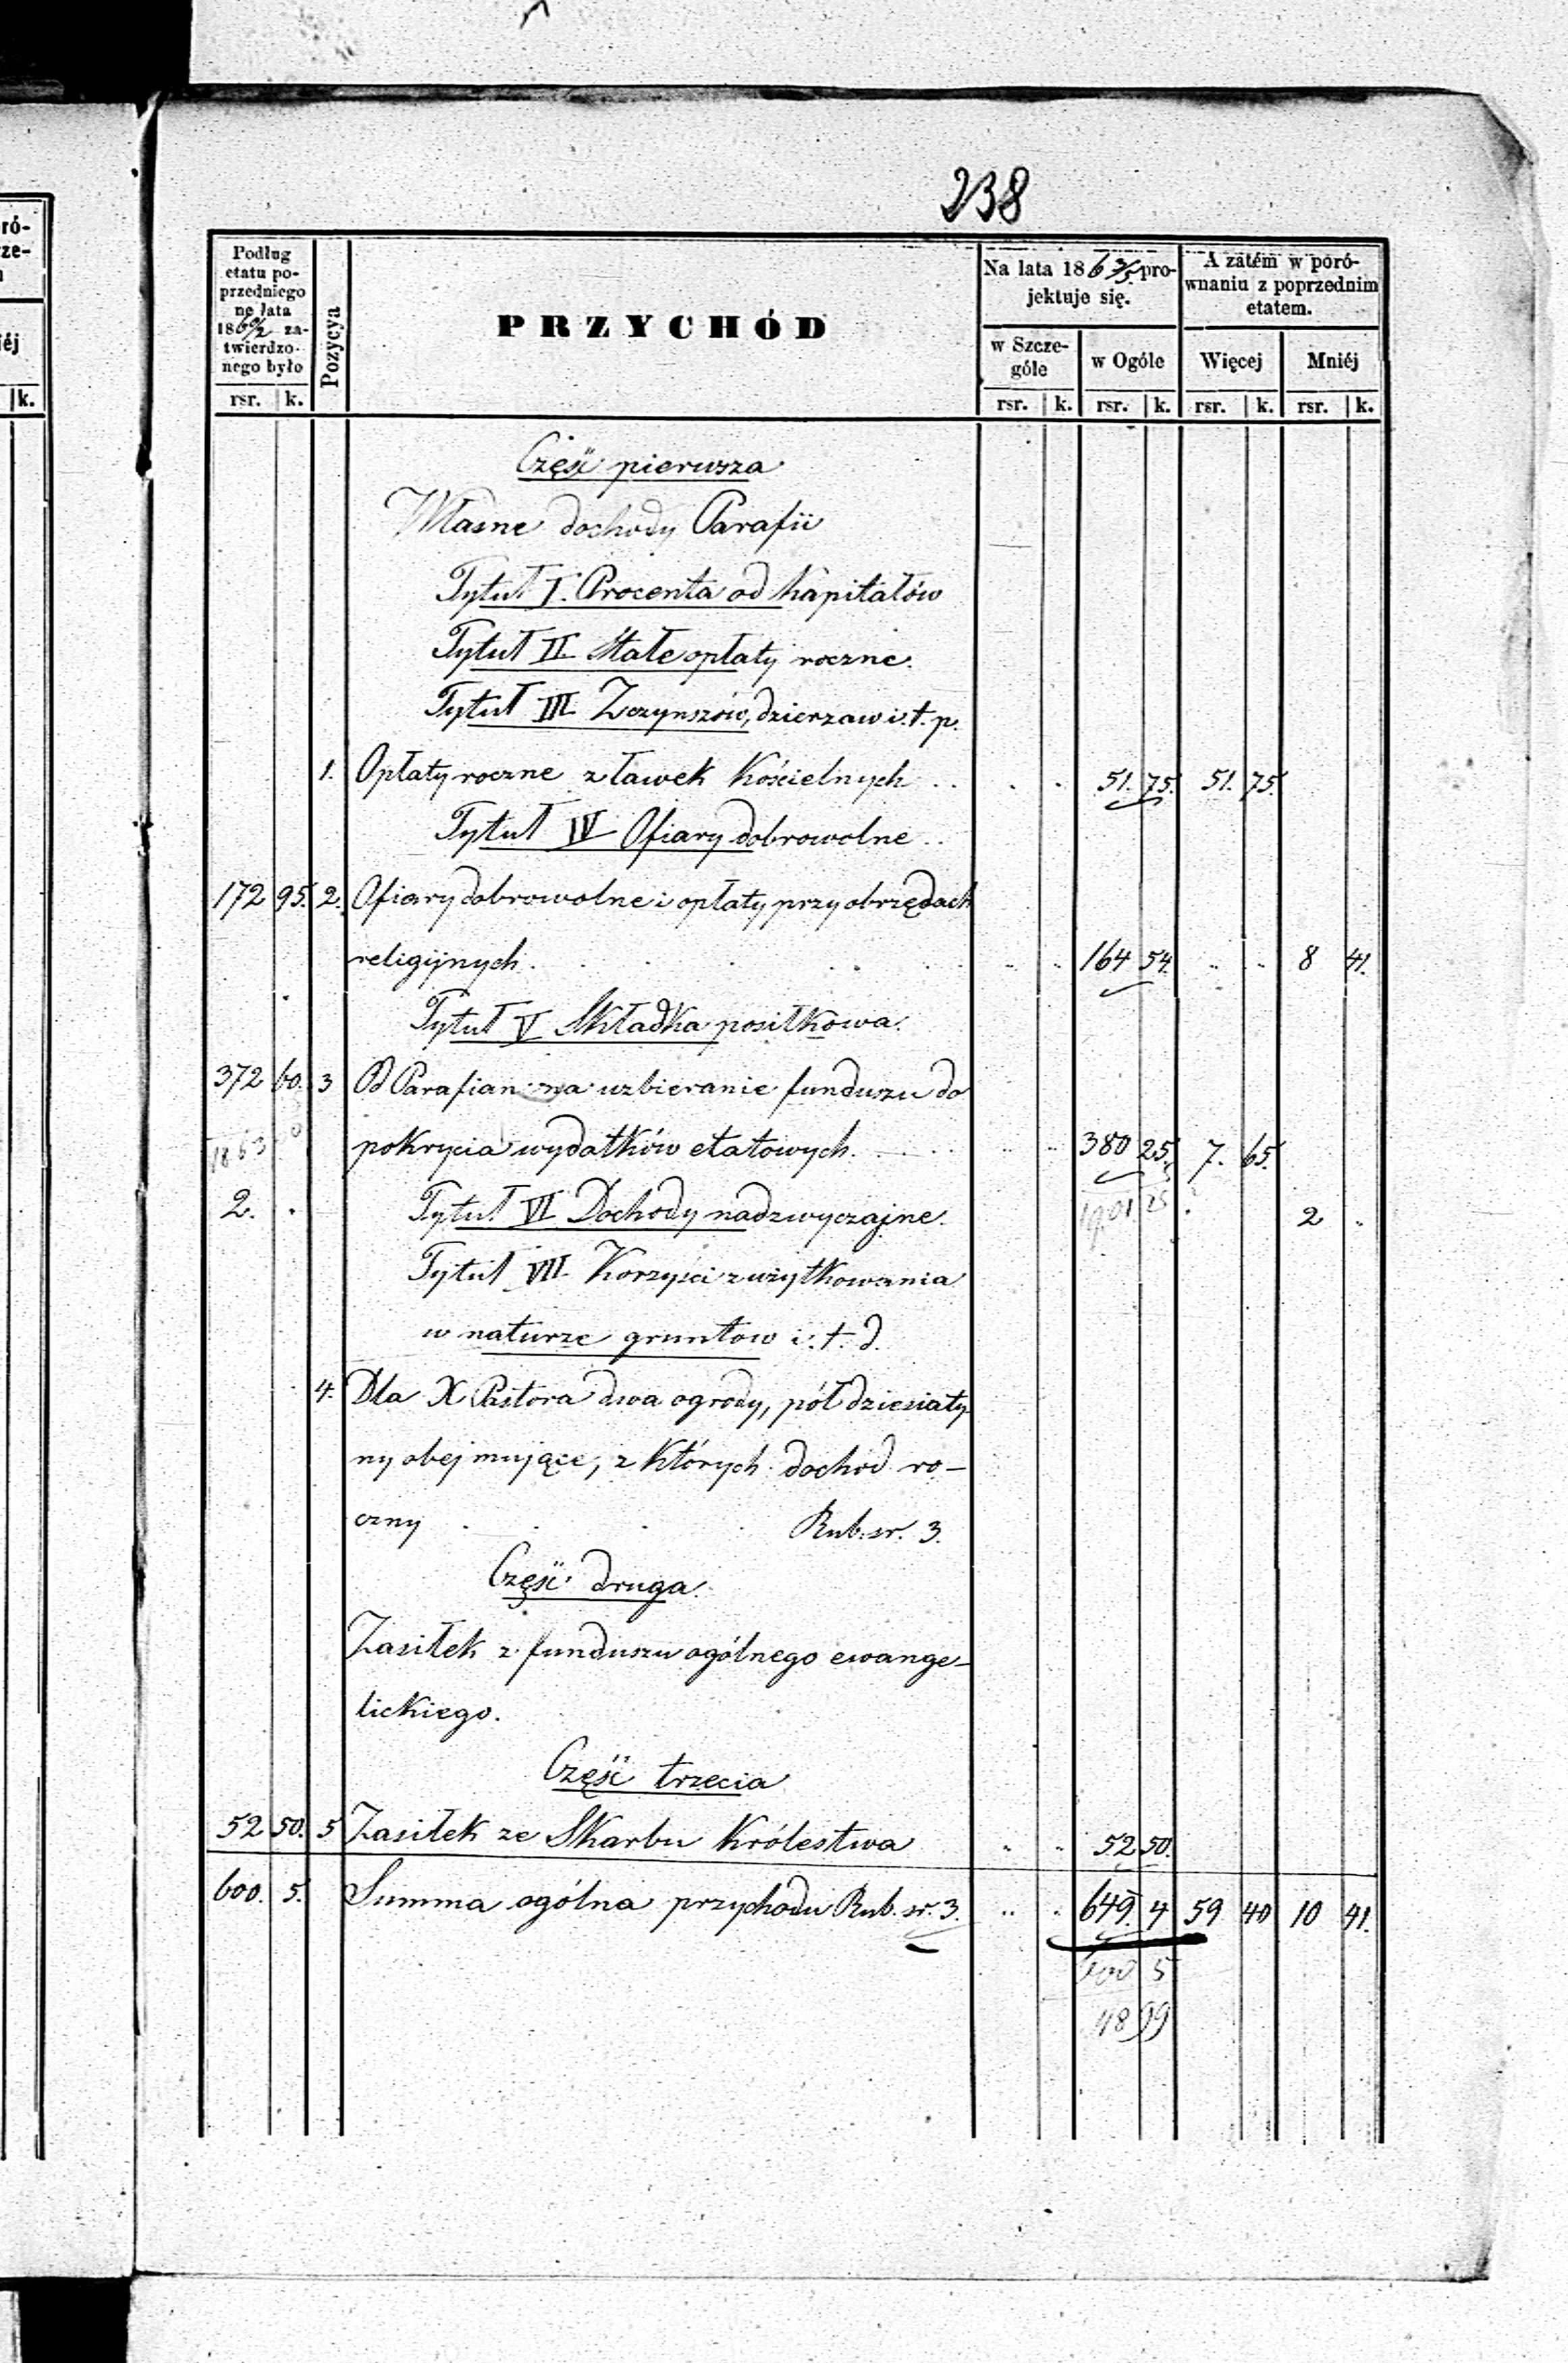 238
ró-
ze-
iéj
k.
Podług etatu poprzedniego na lata 1860/2 zatwierdzonego było
Pozycya
PRZYCHÓD
Na lata 1863/5 projektuje się.
A zatém w porównaniu z poprzednim etatem.
w Szczególe
w Ogóle
Więcej
Mniéj
rsr. k. rsr. k. rsr. k. rsr. k. rsr. k.
Część pierwsza
Własne dochody Parafii
Tytuł I. Procenta od Kapitałów
Tytuł II Stałe opłaty roczne.
Tytuł III Z czynszów, dzierzaw i. t. p.
1. Opłaty roczne z ławek Kościelnych . . . . 51. 75. 51. 75.
Tytuł IV Ofiary dobrowolne . .
172 95. 2. Ofiary dobrowolne i opłaty przy obrzędach
religijnych . . . . 164 54. .. .. 8 41.
Tytuł V Składka posiłkowa.
372 60. 3 Od Parafian na uzbieranie funduszu do
1863 pokrycia wydatków etatowych. . . . 380 25. 7. 65.
2. . Tytuł VI Dochody nadzwyczajne. 2 .
Tytuł VII Korzyści z użytkowania
w naturze gruntow i. t. d.
4. Dla X Pastora dwa ogrody, pół dziesiaty
ny obejmujące, z których dochod ro-
czny . . . . Rub. sr. 3.
Część druga.
Zasiłek z funduszu ogólnego ewange-
lickiego.
Część trzecia
52 50. 5 Zasiłek ze Skarbu Królestwa .. .. 52 50.
600. 5. Summa ogólna przychodu Rub. sr. 3. .. . 649. 4 59 40 10 41.
600 5
48 99